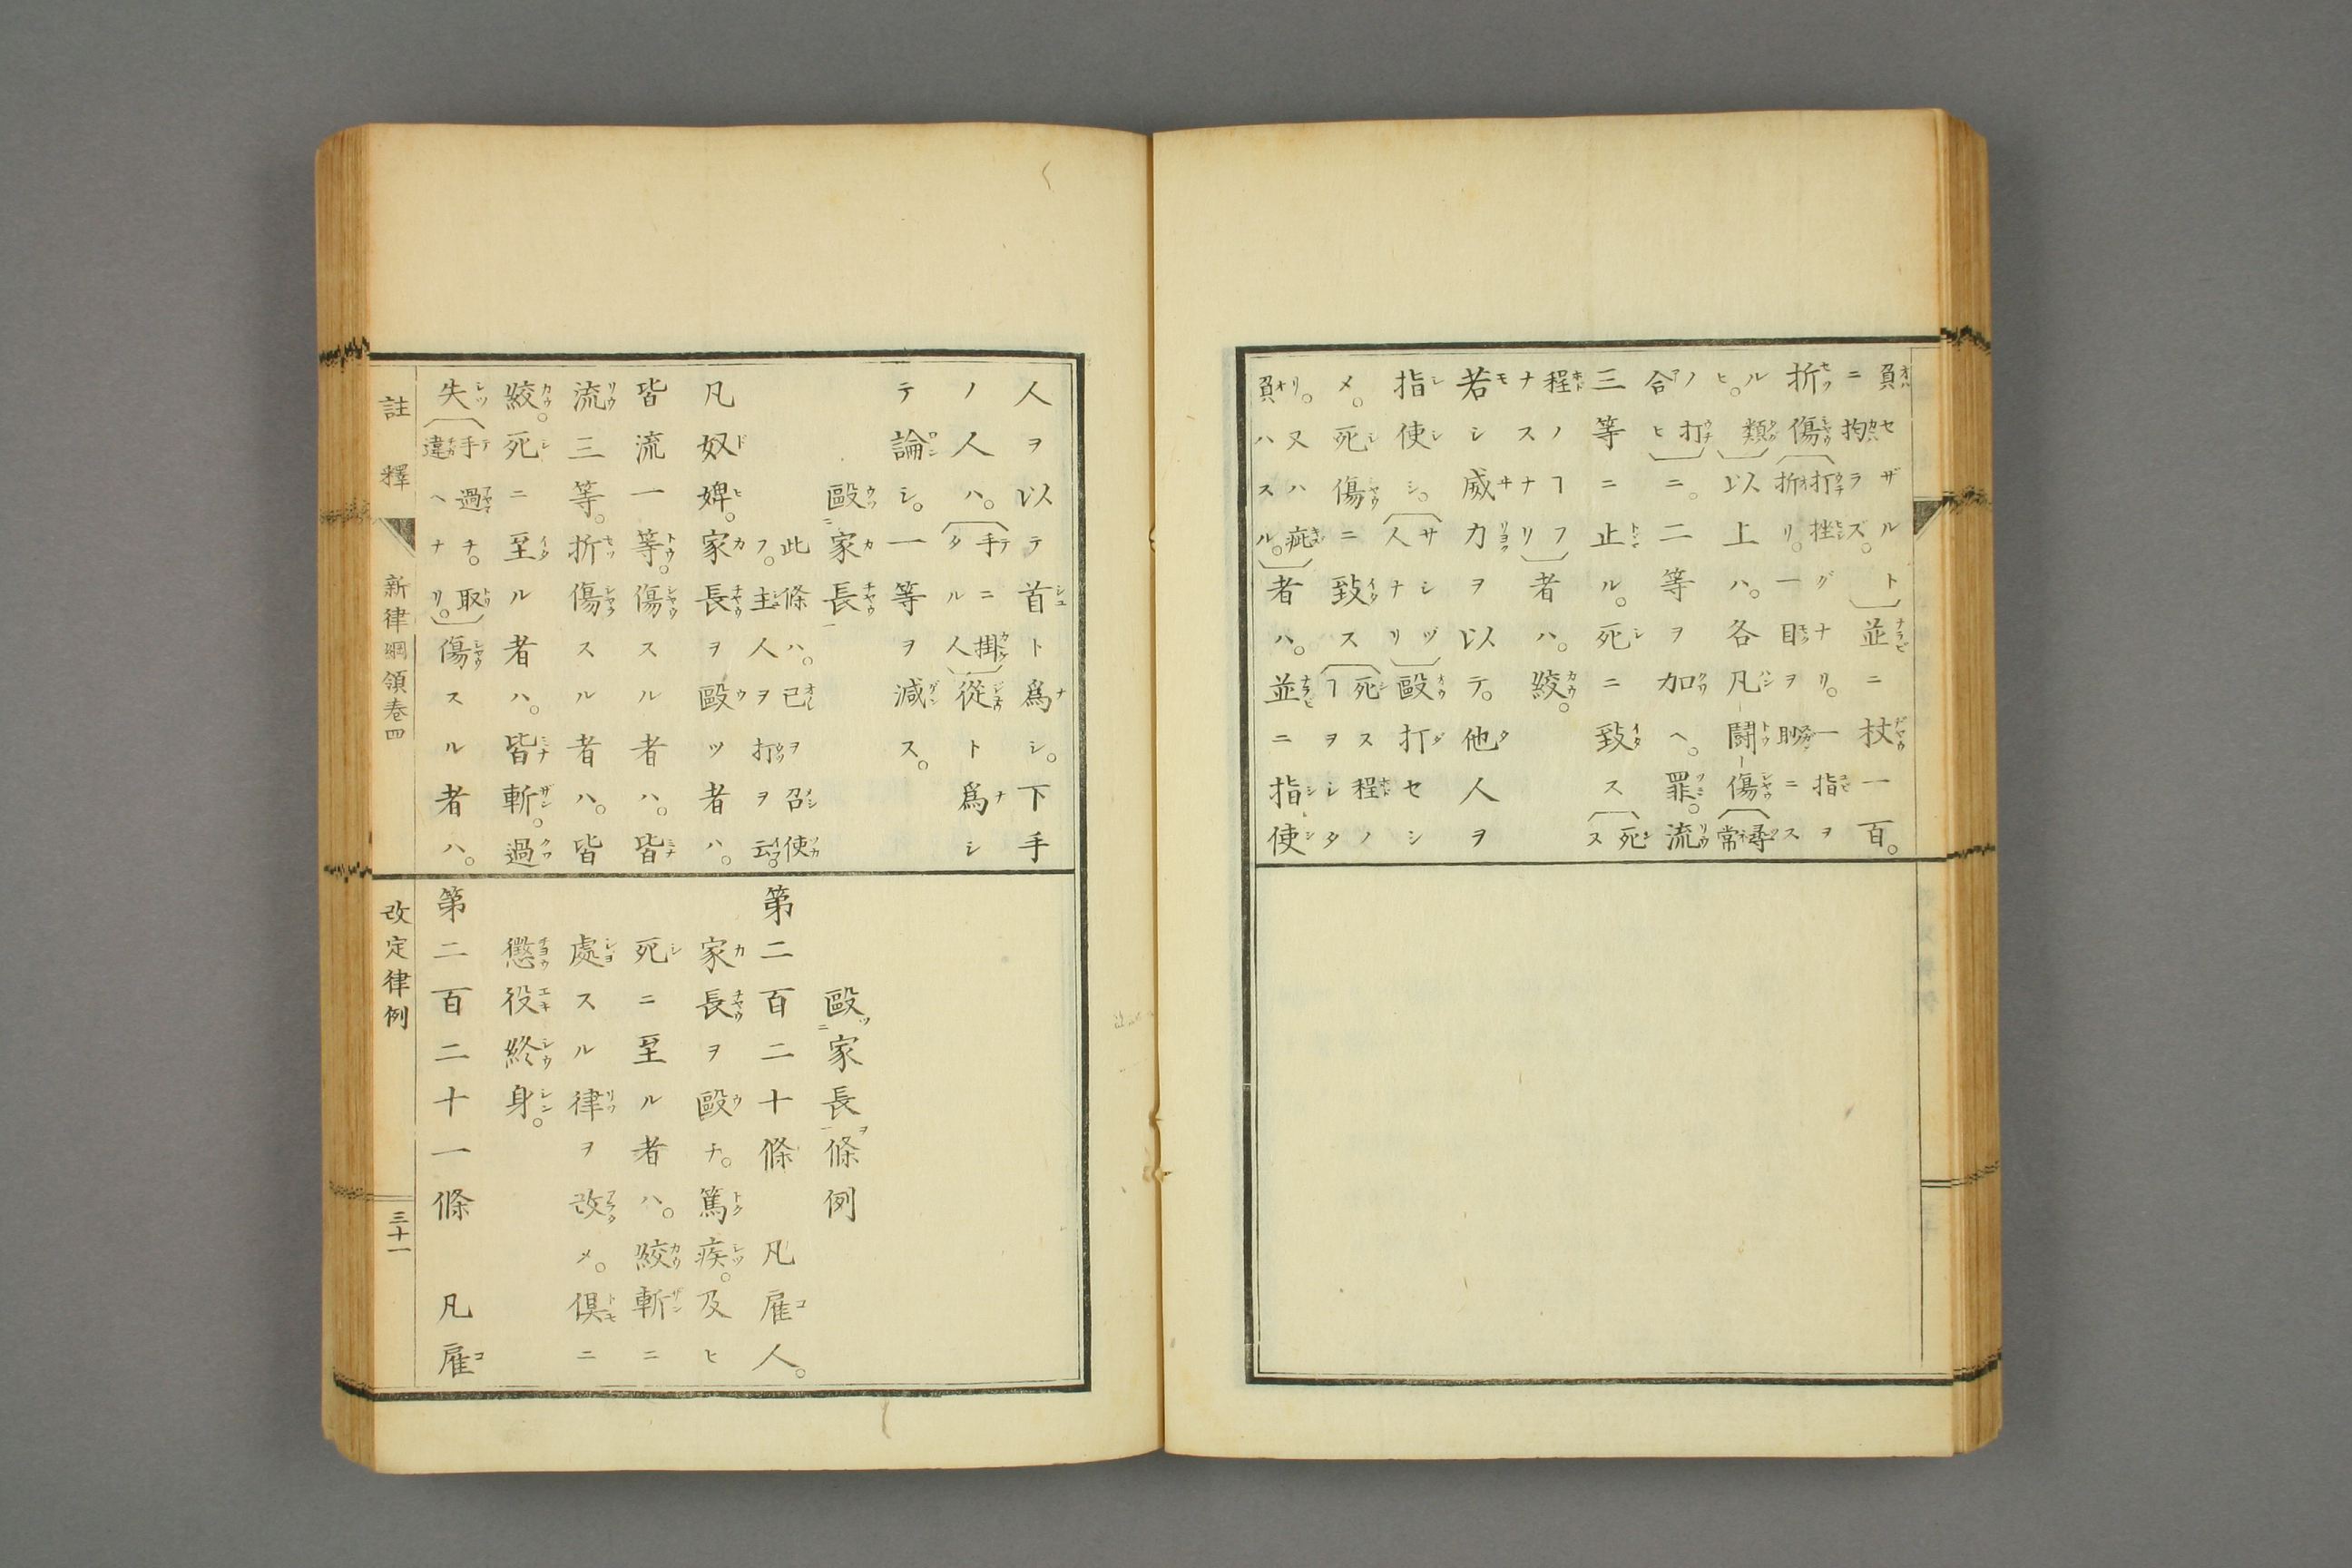 負セザルト
ニ拘ラズ。並ニ杖一百。
折傷打挫グナリ。一指ヲ
折リ。一目ヲ眇ニス
ル類
ヒ。以上ハ。各凡鬪傷尋
常
ノ打
合ヒニ。二等ヲ加ヘ。罪。流
三等ニ止ル。死ニ致ス死
ス
程ノヿフ
ナスナリ者ハ。絞。
若シ威力ヲ以テ。他人ヲ
指使シ。サシヅ
人ナリ毆打セシ
メ。死傷ニ致ス死ス程ノ
ヿヲシタ
リ。又ハ疵
負ハスル。者ハ。並ニ指使
人ヲ以テ首ト爲シ。下手
ノ人ハ。手ニ掛
タル人從ト爲シ
テ論シ。一等ヲ減ス。
毆二家長一
此條ハ。己ヲ召使
フ。主人ヲ打ヲ云。
凡奴婢。家長ヲ毆ツ者ハ。
皆流一等。傷スル者ハ。皆
流三等。折傷スル者ハ。皆
絞。死ニ至ル者ハ。皆斬。過
失手過チ。取
違ヘナリ。傷スル者ハ。
毆ツ二家長一ヲ條例
第二百二十條 凡雇人。
家長ヲ毆チ。篤疾。及ヒ
死ニ至ル者ハ。絞斬ニ
處スル律ヲ改メ。倶ニ
懲役終身。
第二百二十一條 凡雇
註釋 新律綱領卷四 改定律例 三十一